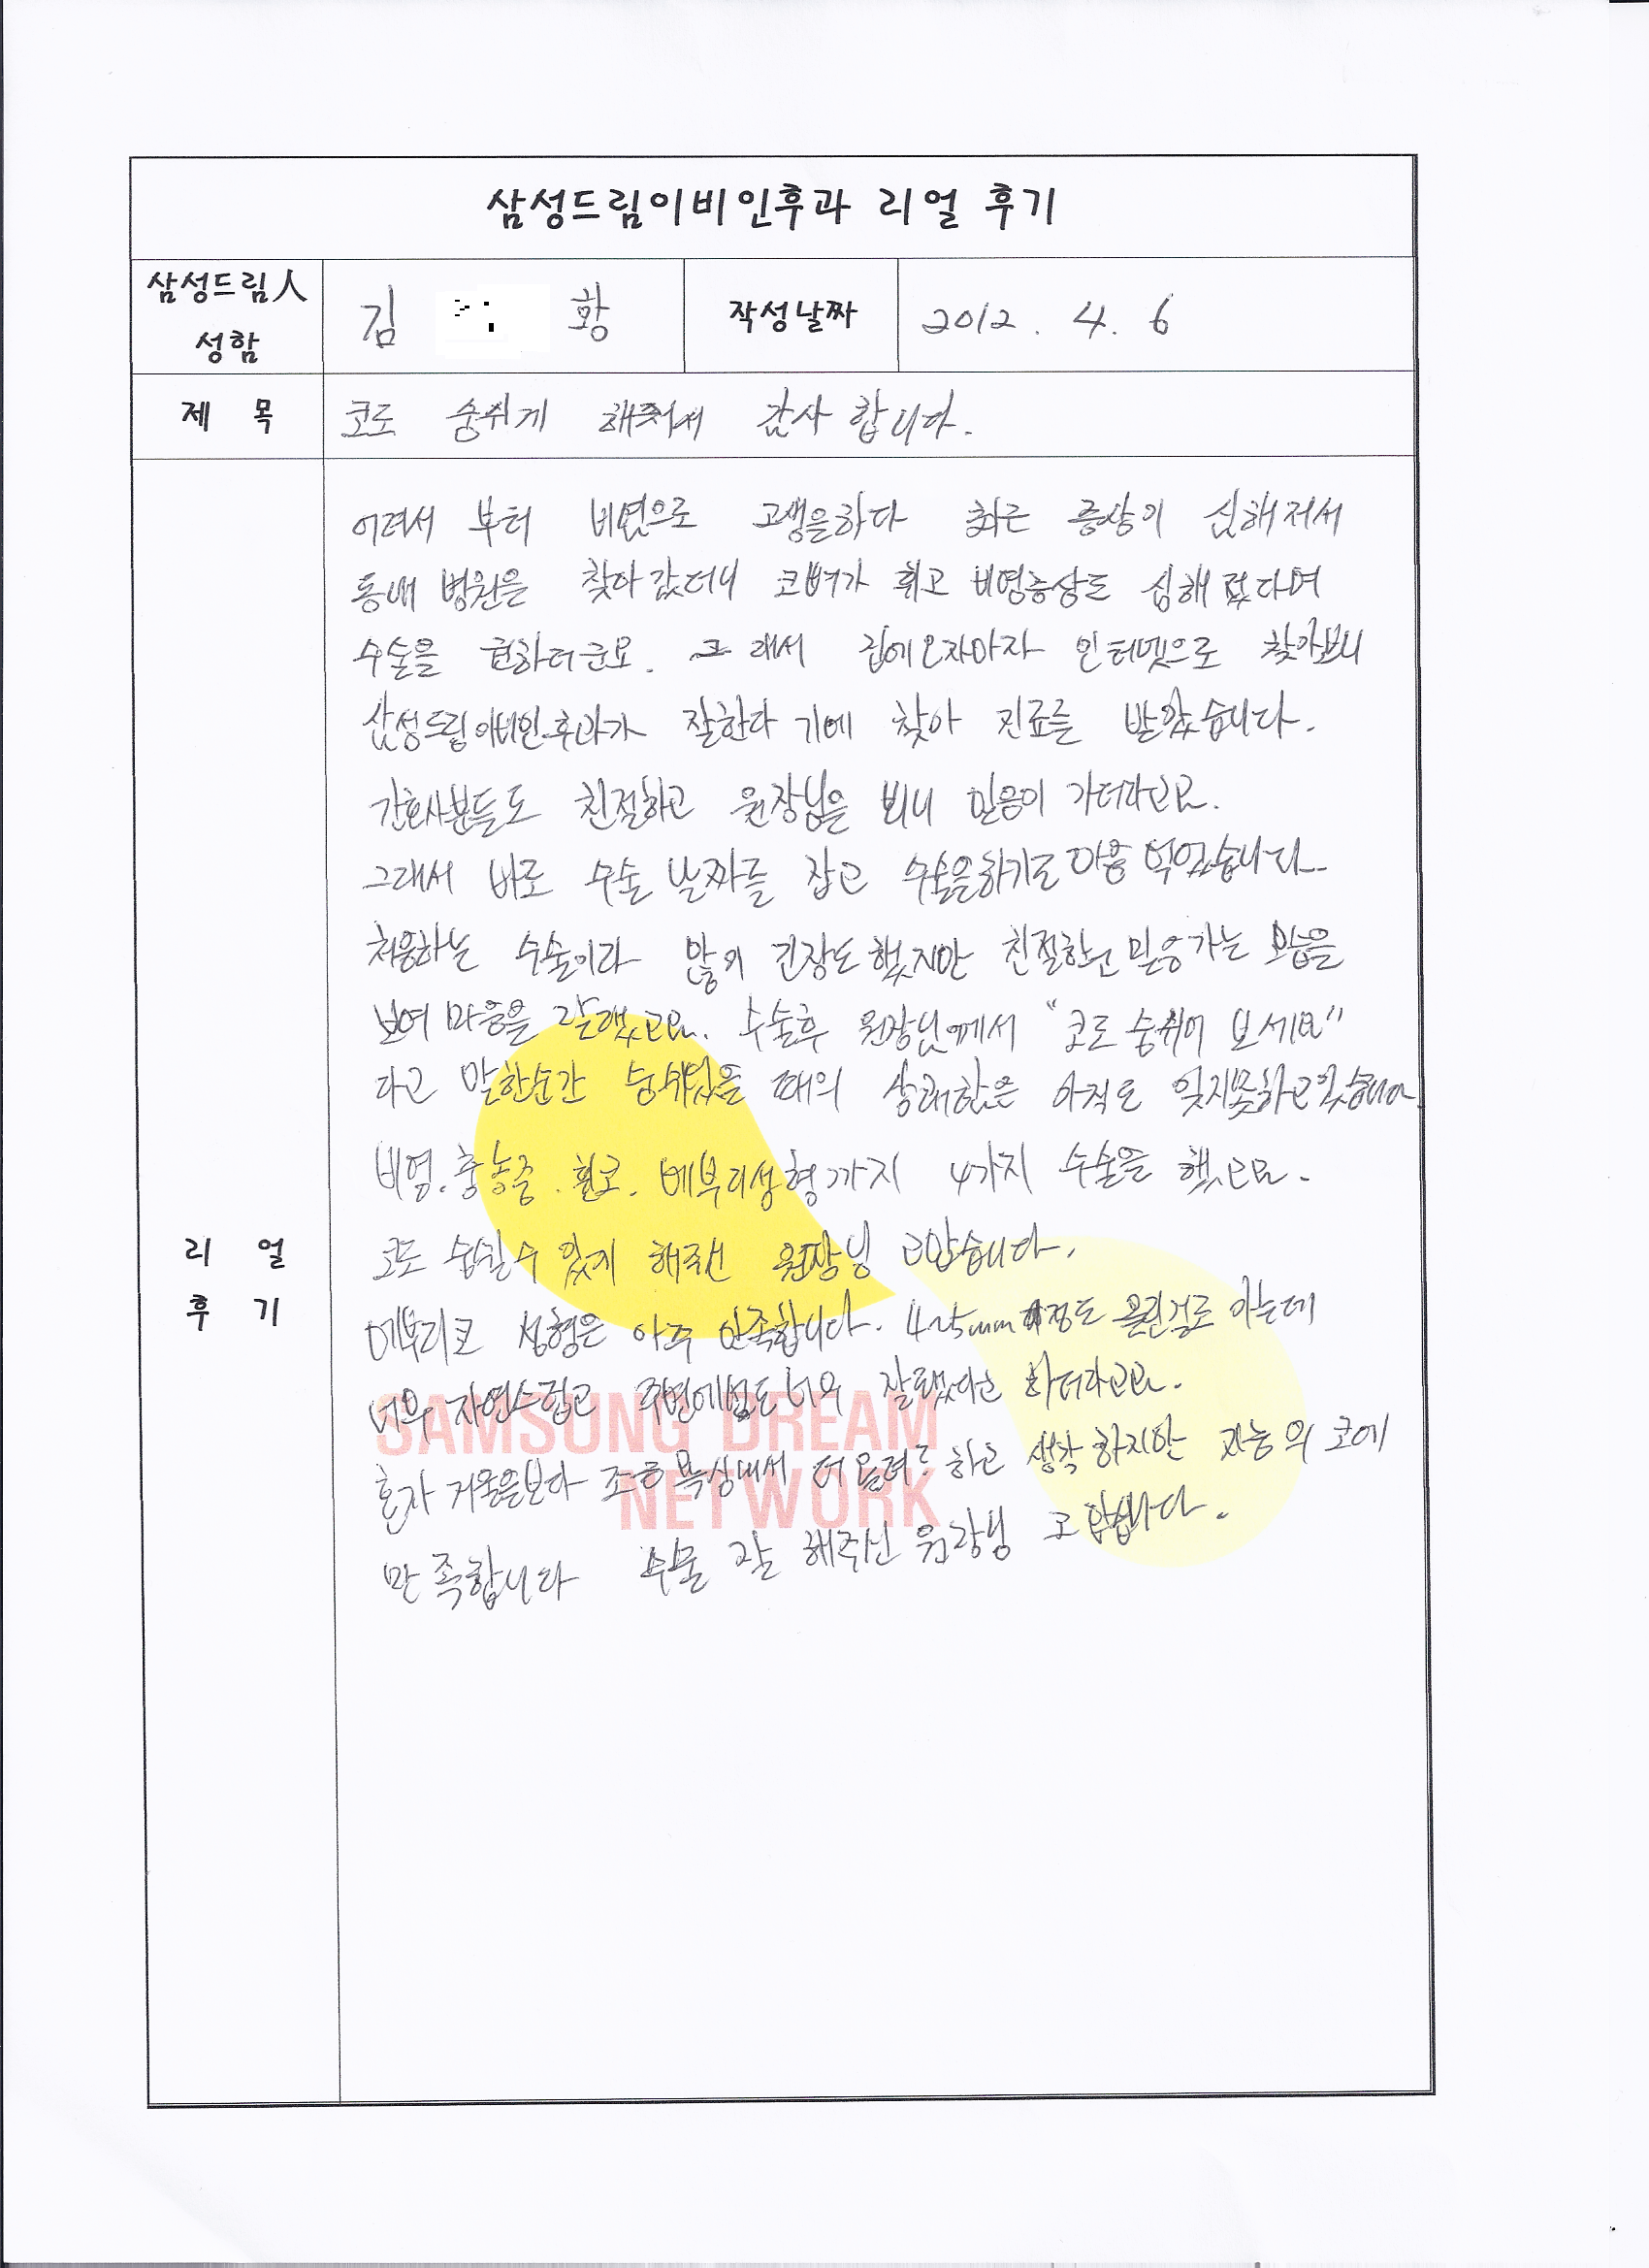 삼성드림이비인후과 리얼 후기
삼성드림人
성함
김 황
작성날짜
2012. 4. 6
제 목
코로 숨쉬게 해줘서 감사 합니다.
어려서 부터 비염으로 고생을하다 최근 증상이 심해져서
동내 병원을 찾아갔더니 코뼈가 휘고 비염증상도 심해졌다며
수술을 권하더군요. 그래서 집에오자마자 인터넷으로 찾아보니
삼성드림이비인후과가 잘한다 기에 찾아 진료를 받았습니다.
간호사분들도 친절하고 원장님을 뵈니 믿음이 가더라고요.
그래서 바로 수술 날짜를 잡고 수술을하기로 마음 먹었습니다.
처음하는 수술이라 많이 긴장도 했지만 친절한고 믿음가는 모습을
보여 마음을 고요. 수술후 원장님께서 "코로 숨쉬어 보세요"
라고 말한순간 숨쉬었을 때의 상쾌함은 아직도 잊지못하고있습니다.
비염.축농증.휜코.메부리성형까지 4가지 수술을 했고요.
코로 숨쉴수 있게 해주신 원장님 고맙습니다.
메부리코 성형은 아주 만족합니다. 4~5mm 정도 올린걸로 아는데
너무 자연스럽고 주변에서도 너무 잘됐다고 하더라고요.
혼자 거울을보다 조금 욕심내서 더 올려? 하고 생각 하지만 지금의 코에
만족합니다 수술 잘 해주신 원장님 고맙습니다.
리 얼
후 기
SAMSUNG DREAM
NETWORK